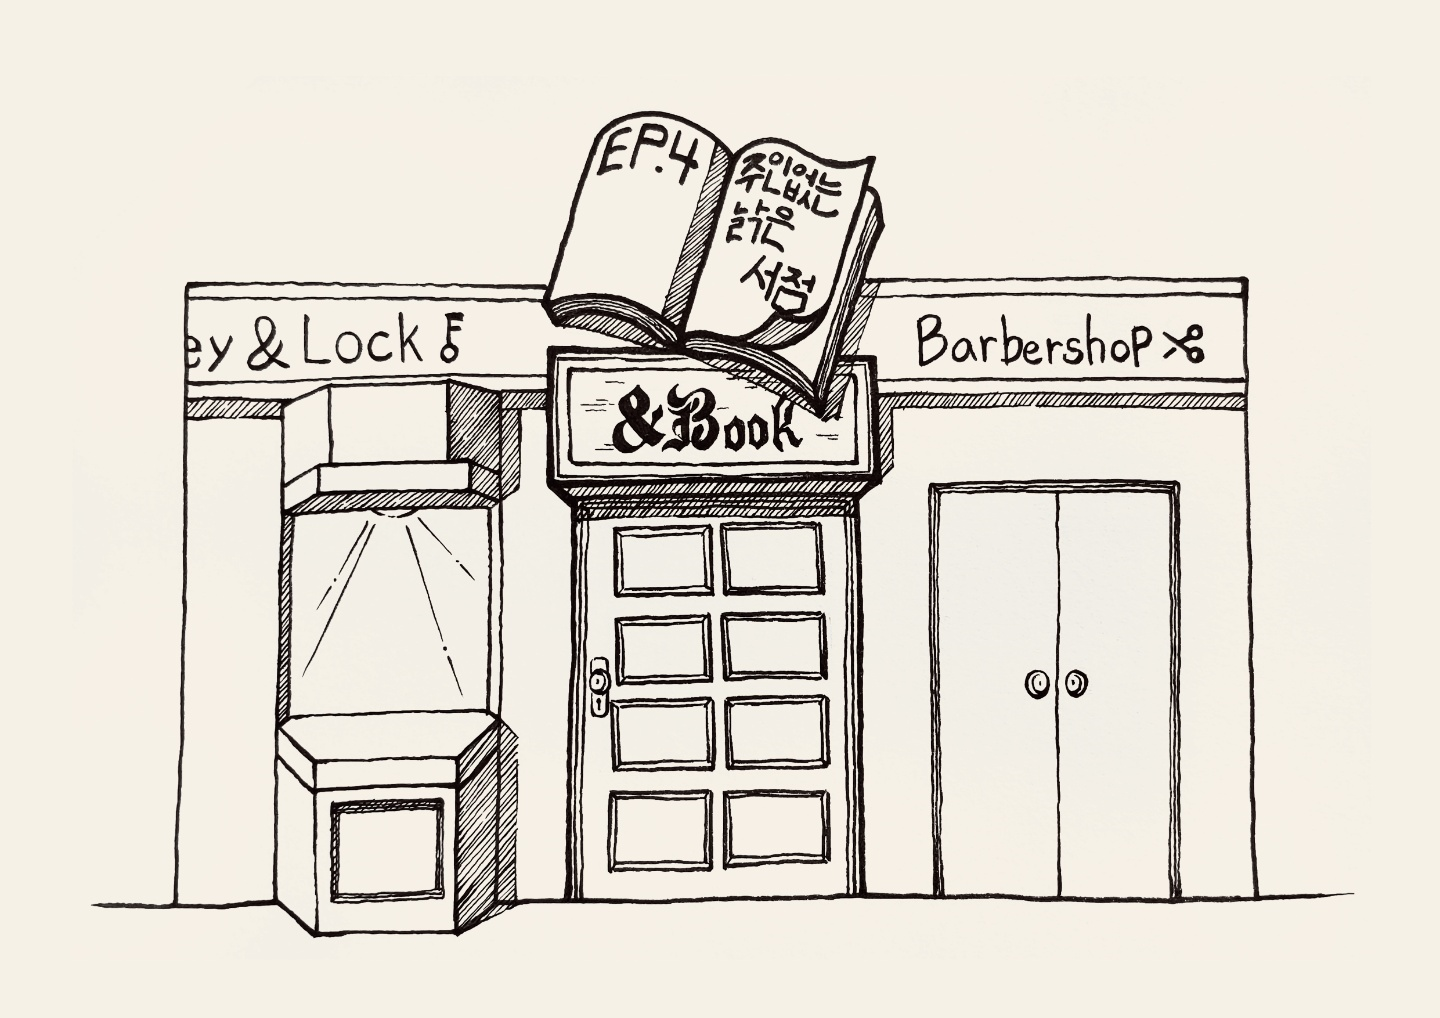 EP.4
주인없는
낡은
서점
ey & Lock
&Book
Barbershop